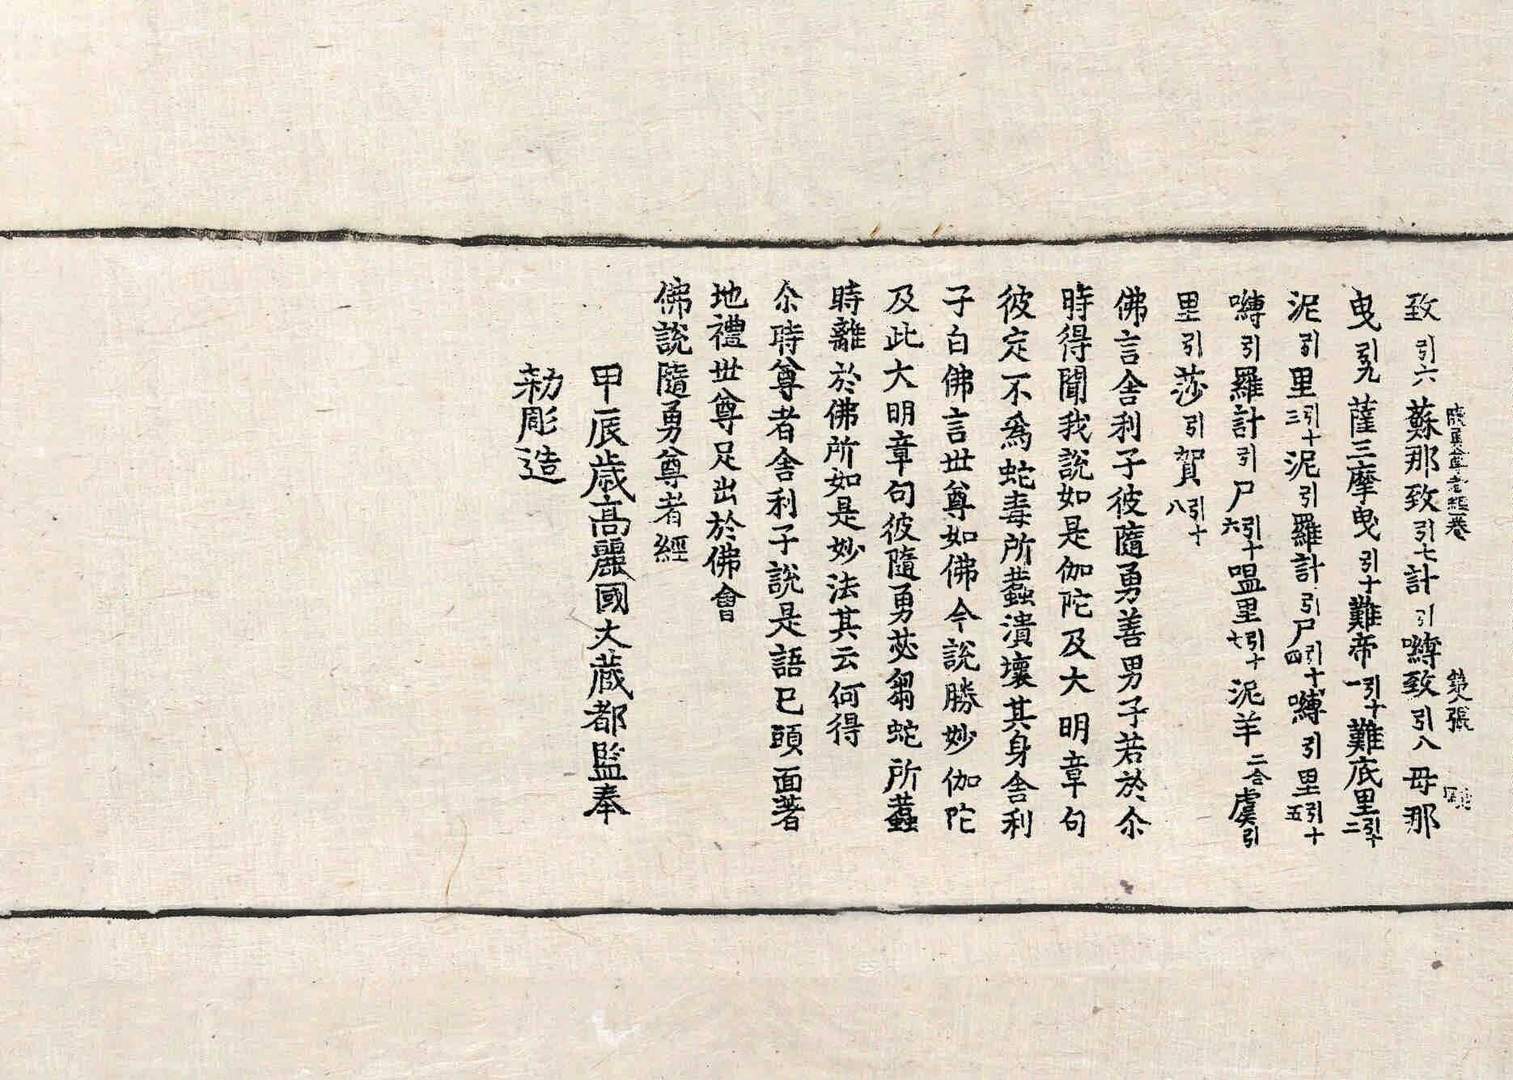 隨勇尊者經卷 第八張
致引六蘇那致引七計引嚩致引八毋那
曳引九薩三摩曳引十難帝引十一難底里引十二
泥引里引十三泥引羅計引尸引十四嚩引里引十五
嚩引羅計引尸引十六嗢里引十七泥羊二合虞引
里引莎引賀引十八
佛言舍利子彼隨勇善男子若於尒
時得聞我說如是伽陀及大明章句
彼定不為蛇毒所螫潰壞其身舍利
子白佛言世尊如佛今說勝妙伽陀
及此大明章句彼隨勇苾芻蛇所螫
時離於佛所如是妙法其云何得
尒時尊者舍利子說是語已頭面著
地禮世尊足出於佛會
佛說隨勇尊者經
甲辰歲高麗國大藏都監奉
勑彫造